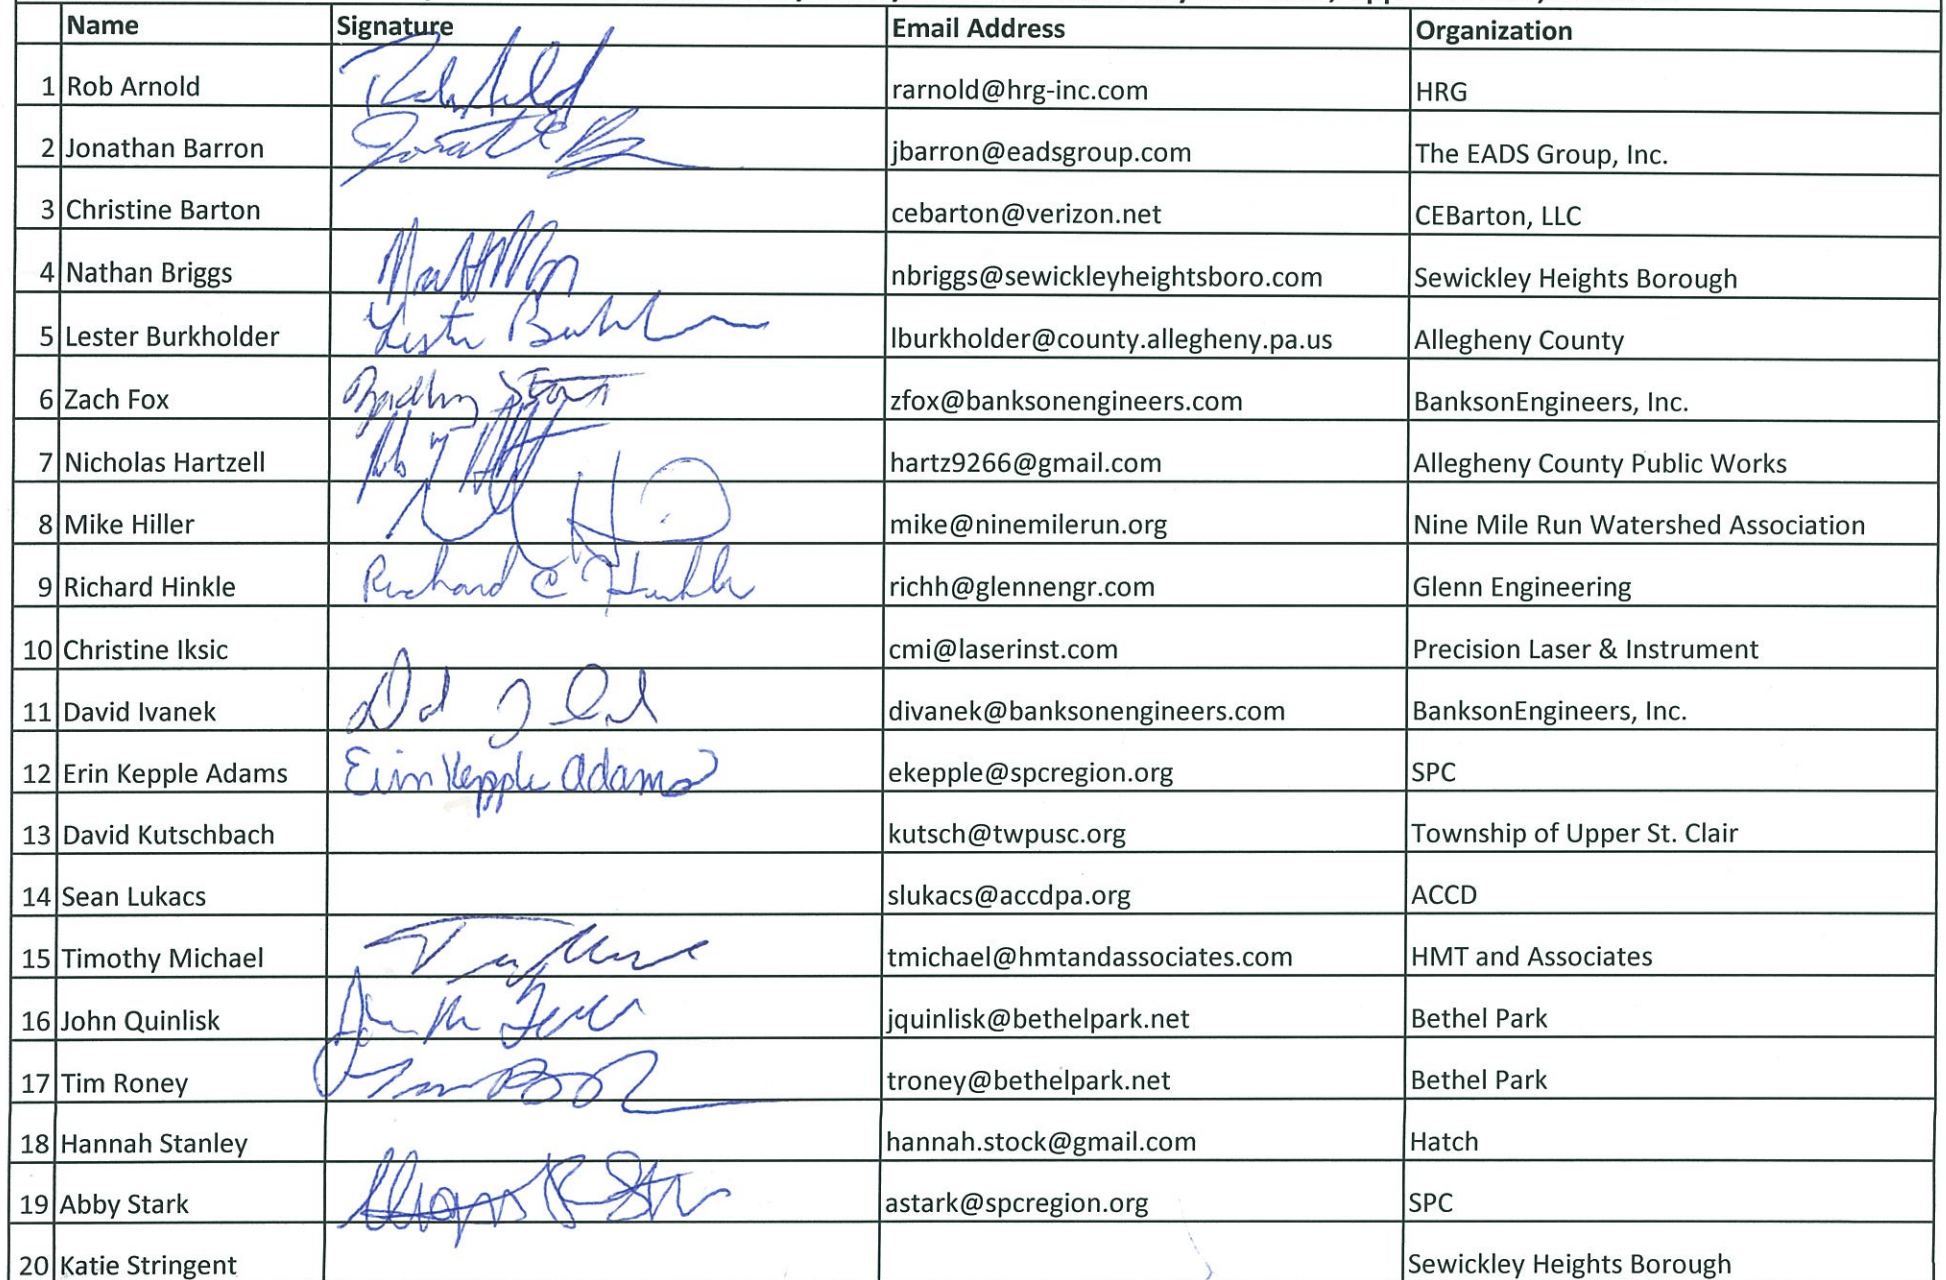 Name Signature Email Address Organization
1 Rob Arnold rarnold@hrg-inc.com HRG
2 Jonathan Barron jbarron@eadsgroup.com The EADS Group, Inc.
3 Christine Barton cebarton@verizon.net CEBarton, LLC
4 Nathan Briggs nbriggs@sewickleyheightsboro.com Sewickley Heights Borough
5 Lester Burkholder Lester lburkholder@county.allegheny.pa.us Allegheny County
6 Zach Fox zfox@banksonengineers.com BanksonEngineers, Inc.
7 Nicholas Hartzell hartz9266@gmail.com Allegheny County Public Works
8 Mike Hiller mike@ninemilerun.org Nine Mile Run Watershed Association
9 Richard Hinkle Richard C Hinkle richh@glennengr.com Glenn Engineering
10 Christine Iksic cmi@laserinst.com Precision Laser & Instrument
11 David Ivanek divanek@banksonengineers.com BanksonEngineers, Inc.
12 Erin Kepple Adams Erin Kepple Adams ekepple@spcregion.org SPC
13 David Kutschbach kutsch@twpusc.org Township of Upper St. Clair
14 Sean Lukacs slukacs@accdpa.org ACCD
15 Timothy Michael tmichael@hmtandassociates.com HMT and Associates
16 John Quinlisk jquinlisk@bethelpark.net Bethel Park
17 Tim Roney troney@bethelpark.net Bethel Park
18 Hannah Stanley hannah.stock@gmail.com Hatch
19 Abby Stark astark@spcregion.org SPC
20 Katie Stringent Sewickley Heights Borough